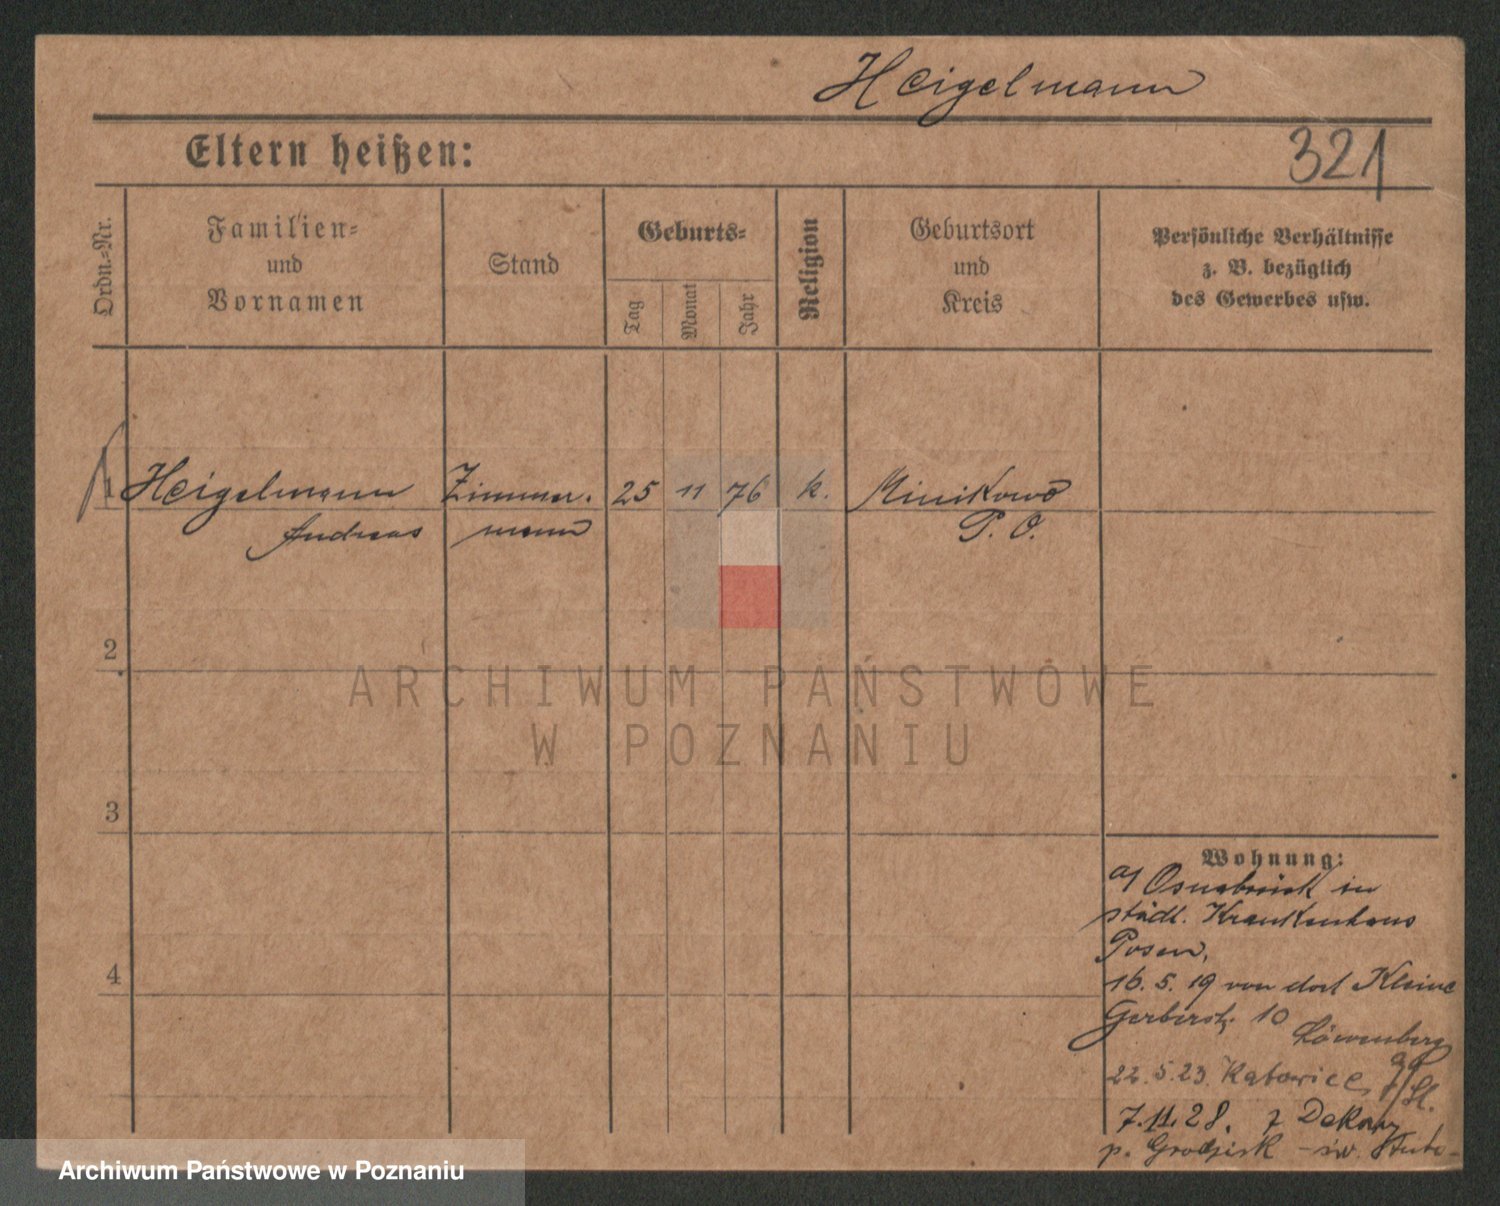 Heigelmann
Eltern heißen:
321
Ordn.-Nr.
Familien-
und
Vornamen
Stand
Geburts-
Tag
Monat
Jahr
Religion
Geburtsort
und
Kreis
Persönliche Verhältnisse
z. B. bezüglich
des Gewerbes usw.
1 Heigelmann Zimmer- 25 11 76 k. Minikowo
Andreas mann P. O.
2
3
4
ARCHIWUM PAŃSTWOWE
W POZNANIU
Wohnung:
Osnabrück in
städt. Krankenhaus
Posen,
16.5.19 von dort Kleine
Gerberstr. 10
Löwenberg
22.5.23. Katowice
7.11.28. z Dakowy
p. Grodzisk - św.
Archiwum Państwowe w Poznaniu